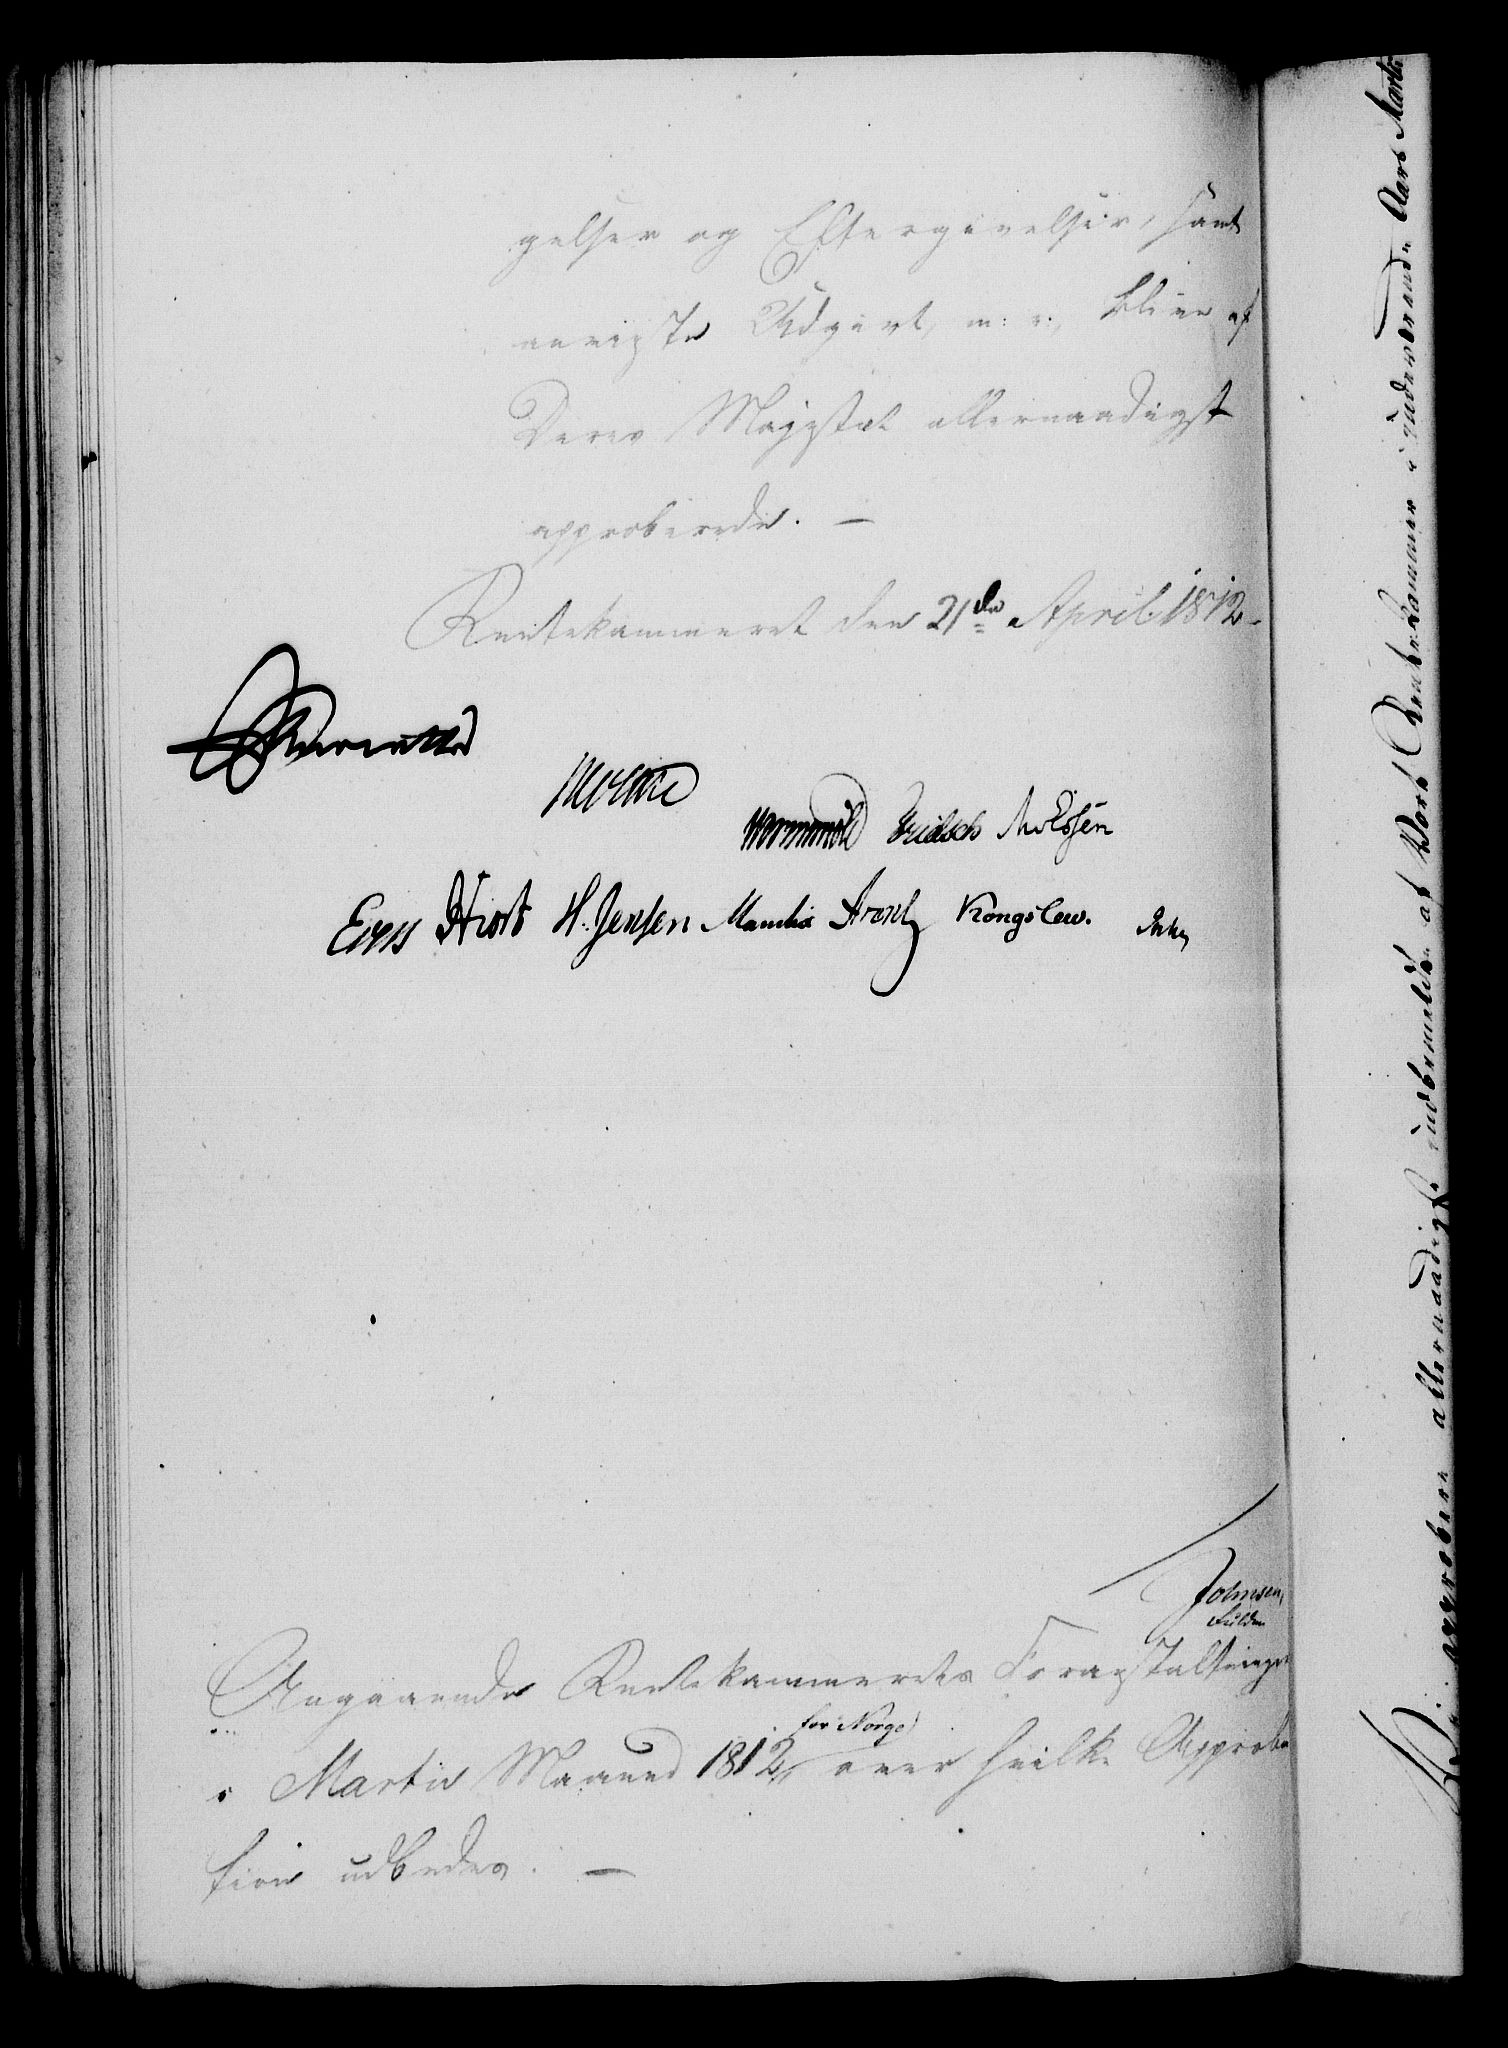 gelser og Eftergivelser, samt
anvigste Udgivt, m: v:, blive af
Deres Majestæt allernaadigst
approberede. —
Rentekammeret den 21de April 1812.
Moltke
Wormskiold Fridsch Knudsen
Hiort H. Jensen Manthey Arentz Kongslew.
Johnsen,
Angaaende Rentekammerets Foranstaltninger
i Martii Maaned 1812 (for Norge) over hvilke Approba
tion udbedes. —
Vi approbere allernaadigst indbemeldte af Vort Rentekammer i indeværende Aars Martii